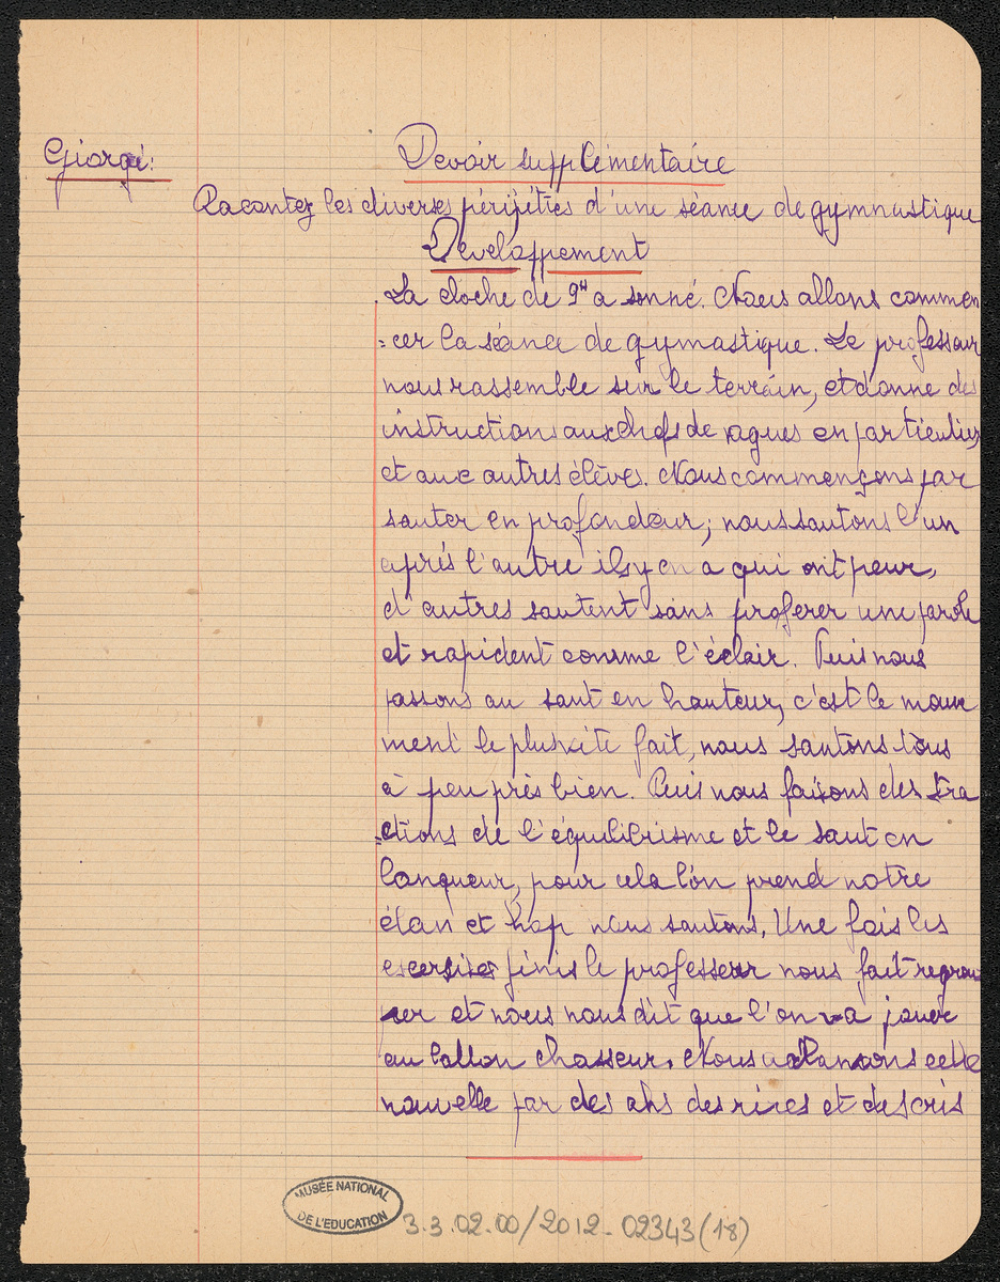 Giorgi:
Devoir supplémentaire
Racontez les diverses péripéties d'une séance de gymnastique
Developpement
La cloche de 9H a sonné. Nous allons commen
=cer la séance de gymastique. Le professeur
nous rassemble sur le terrain, et donne des
instructions aux chefs de vagues en particulier
et aux autres élèves. Nous commençons par
sauter en profondeur; nous sautons l'un
après l'autre il y en a qui ont peur,
d'autres sautent sans proferer une parole
et rapident comme l'éclair. Puis nous
passons au saut en hauteur, c'est le mouve
ment le plus vite fait, nous sautons tous
à peu près bien. Puis nous faisons des tra
=ctions de l'équilibrisme et le saut en
longueur, pour cela l'on prend notre
élan et hop nous sautons. Une fois les
excersices finis le professeur nous fait regrou
per et nous nous dit que l'on va jouer
au ballon chasseur. Nous cette
nouvelle par des ahs des rires et des cris
MUSÉE NATIONAL
DE L'EDUCATION
3.3.02.00/2012-02343(18)